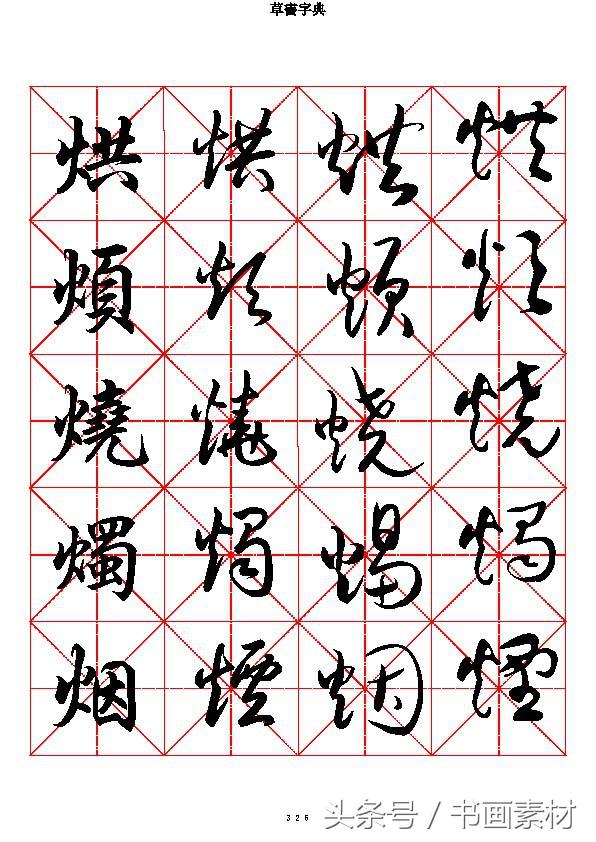 草書字典
烘 烘 烘 烘
煩 煩 煩 煩
燒 燒 烧 烧
燭 燭 燭 燭
烟 煙 烟 煙
326
头条号 / 书画素材